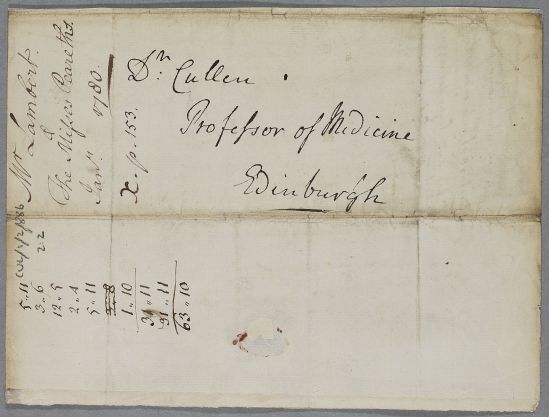 Dr. Cullen
Professor of Medicine
Edinburgh
Mr Lambert.
&
The Misses Peareths.
Janry 1780.
X. p. 153.
2 2
5 „ 11
3 „ 6
12 „ 5
2 „ 4
5 „ 11
1 „ 10
31 „ 11
31 „ 11
63 „ 10